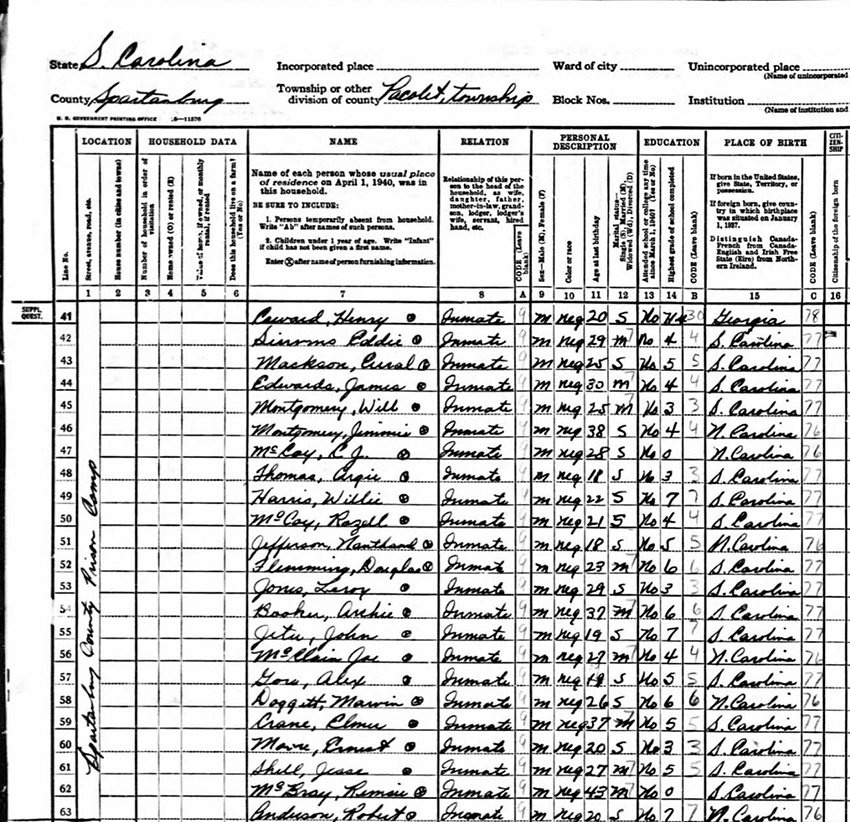 State S. Carolina Incorporated place Ward of city Unincorporated place
(Name of unincorporated
County Spartanburg Township or other division of county Pacolet, township Block Nos. Institution
(Name of institution and
U. S. GOVERNMENT PRINTING OFFICE 16—11576
LOCATION HOUSEHOLD DATA NAME RELATION PERSONAL DESCRIPTION EDUCATION PLACE OF BIRTH CITIZENSHIP
Line No.
Street, avenue, road, etc.
House number (in cities and towns)
Number of household in order of visitation
Home owned (O) or rented (R)
Value of home, if owned, or monthly rental, if rented
Does this household live on a farm? (Yes or No)
Name of each person whose usual place of residence on April 1, 1940, was in this household.
BE SURE TO INCLUDE:
1. Persons temporarily absent from household. Write "Ab" after names of such persons.
2. Children under 1 year of age. Write "Infant" if child has not been given a first name.
Enter ⓧ after name of person furnishing information.
Relationship of this person to the head of the household, as wife, daughter, father, mother-in-law, grandson, lodger, lodger's wife, servant, hired hand, etc.
CODE (Leave blank)
Sex—Male (M), Female (F)
Color or race
Age at last birthday
Marital status—Single (S), Married (M), Widowed (Wd), Divorced (D)
Attended school or college any time since March 1, 1940? (Yes or No)
Highest grade of school completed
CODE (Leave blank)
If born in the United States, give State, Territory, or possession.
If foreign born, give country in which birthplace was situated on January 1, 1937.
Distinguish Canada-French from Canada-English and Irish Free State (Eire) from Northern Ireland.
CODE (Leave blank)
Citizenship of the foreign born
1 2 3 4 5 6 7 8 A 9 10 11 12 13 14 B 15 C 16
SUPPL. QUEST.
Spartanburg County Prison Camp
41 Henry Inmate 9 M neg 20 S No 30 Georgia 78
42 Simms Eddie Inmate 9 M neg 29 M 7 No 4 4 S. Carolina 77
43 Mackson, Inmate 9 M neg 25 S No 5 5 S. Carolina 77
44 Edwards, James Inmate 9 M neg 30 M 7 No 4 4 S. Carolina 77
45 Montgomery, Will Inmate 9 M neg 25 M 7 No 3 3 S. Carolina 77
46 Montgomery, Jimmie Inmate 9 M neg 38 S No 4 4 N. Carolina 76
47 McCoy, C. J. Inmate 9 M neg 28 S No 0 N. Carolina 76
48 Thomas, Argie Inmate 9 M neg 18 S No 3 3 S. Carolina 77
49 Harris, Willie Inmate 9 M neg 22 S No 7 7 S. Carolina 77
50 McCoy, Rozell Inmate 9 M neg 21 S No 4 4 S. Carolina 77
51 Jefferson, Inmate 9 M neg 18 S No 5 5 N. Carolina 76
52 Flemming, Douglas Inmate 9 M neg 23 M 7 No 6 6 S. Carolina 77
53 Jones, Leroy Inmate 9 M neg 29 S No 3 3 S. Carolina 77
54 Booker, Archie Inmate 9 M neg 37 M 7 No 6 6 S. Carolina 77
55 Jeter, John Inmate 9 M neg 19 S No 7 7 S. Carolina 77
56 McClain Joe Inmate 9 M neg 27 M 7 No 4 4 N. Carolina 76
57 Gore, Alex Inmate 9 M neg 19 S No 5 5 S. Carolina 77
58 Doggett, Marvin Inmate 9 M neg 26 S No 6 6 N. Carolina 76
59 Crane, Elmer Inmate 9 M neg 37 M 7 No 5 5 S. Carolina 77
60 Moore, Ernest Inmate 9 M neg 20 S No 3 3 S. Carolina 77
61 Shell, Jesse Inmate 9 M neg 27 M 7 No 5 5 S. Carolina 77
62 McBray, Inmate 9 M neg 43 M 7 No 0 S. Carolina 77
63 Anderson, Robert Inmate 9 M neg 20 S No 7 7 N. Carolina 76